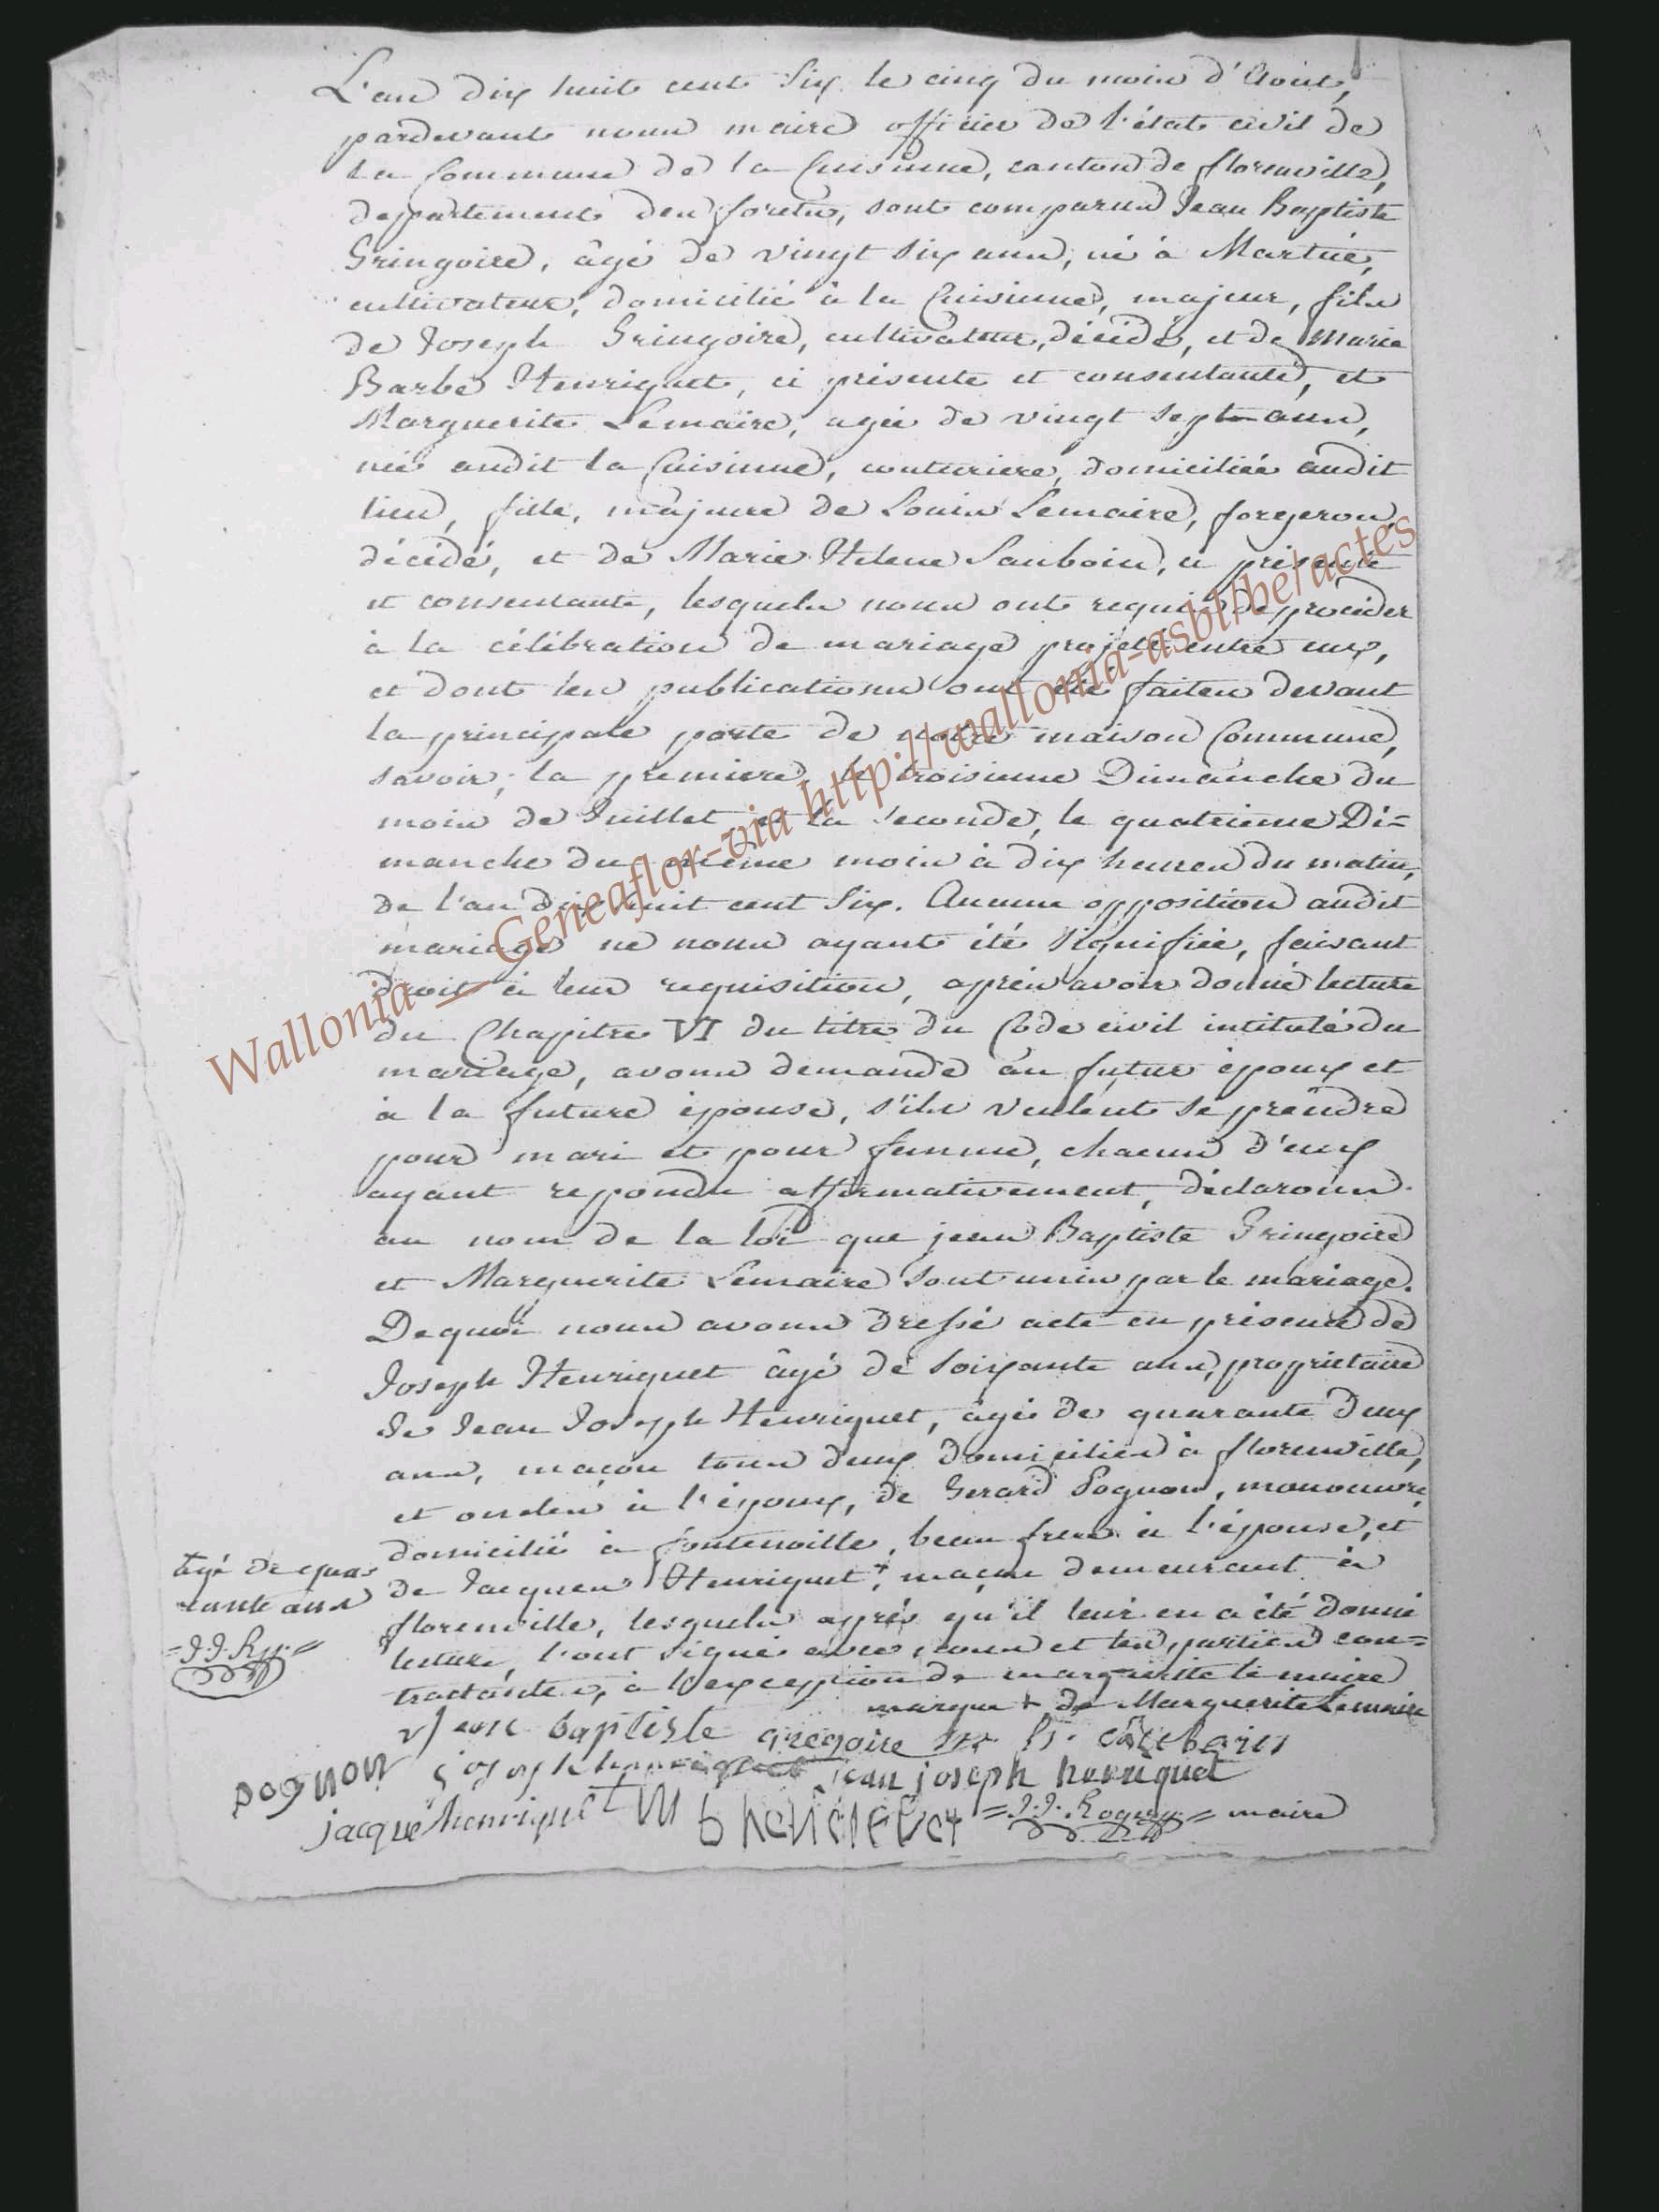 L'an dix huit cent Six le cinq du mois d'Aout,
pardevant nous maire officier de l'état civil de
la Commune de la Cuisinne, canton de florenville,
departement des forets, sont comparus Jean Baptiste
Gringoire, âgé de vingt six ans, né à Martué,
cultivateur, domicilié à la Cuisinne, majeur, fils
de Joseph Gringoire, cultivateur, décédé, et de Marie
Barbe Henriquet, ci présente et consentante, et
Marguerite Lemaire, agée de vingt sept ans,
née audit la Cuisinne, couturiere, domiciliée audit
lieu, fille, majeure de Louis Lemaire, forgeron,
décédé, et de Marie Helene Sauboin, ci présente
et consentante, lesquels nous ont requis de procéder
à la célébration de mariage projeté entre eux,
et dont les publications ont été faites devant
la principale porte de notre maison Commune,
savoir, la premiere, le troisieme Dimanche du
mois de Juillet et la seconde, le quatrieme Di=
manche du même mois à dix heures du matin,
de l'an dix huit cent Six. Aucune opposition audit
mariage ne nous ayant été signifiée, faisant
droit à leur requisition, après avoir donné lecture
du Chapitre VI du titre du Code civil intitulé du
mariage, avons demandé au futur époux et
à la future épouse, s'ils veulent se prendre
pour mari et pour femme, chacun d'eux
ayant repondu affirmativement, déclarons
au nom de la loi que jean Baptiste Gringoire
et Marguerite Lemaire sont unis par le mariage.
De quoi nous avons dressé acte en présence de
Joseph Henriquet âgé de soixante ans, proprietaire
de Jean Joseph Henriquet, âgé de quarante deux
ans, maçon tous deux domiciliés à florenville,
et oncles à l'époux, de Gerard Pognon, manouvre,
domicilié à fontenoille, beau frere à l'épouse, et
de Jacques Henriquet +, maçon demeurant à
florenville, lesquels après qu'il leur en a été donné
lecture, l'ont signé avec nous et les parties con=
tractantes, à l'exception de marguerite le maire
âgé de qua=
rante ans
=J.J. Ry.=
marque + de Marguerite Lemaire
jean baptiste gregoire
pognon joseph henriquet jean joseph henriquet
jacque henriquet m b henrieket =J.J. Rogery= maire
Wallonia - Geneaflor-via http://wallonia-asbl/be/actes